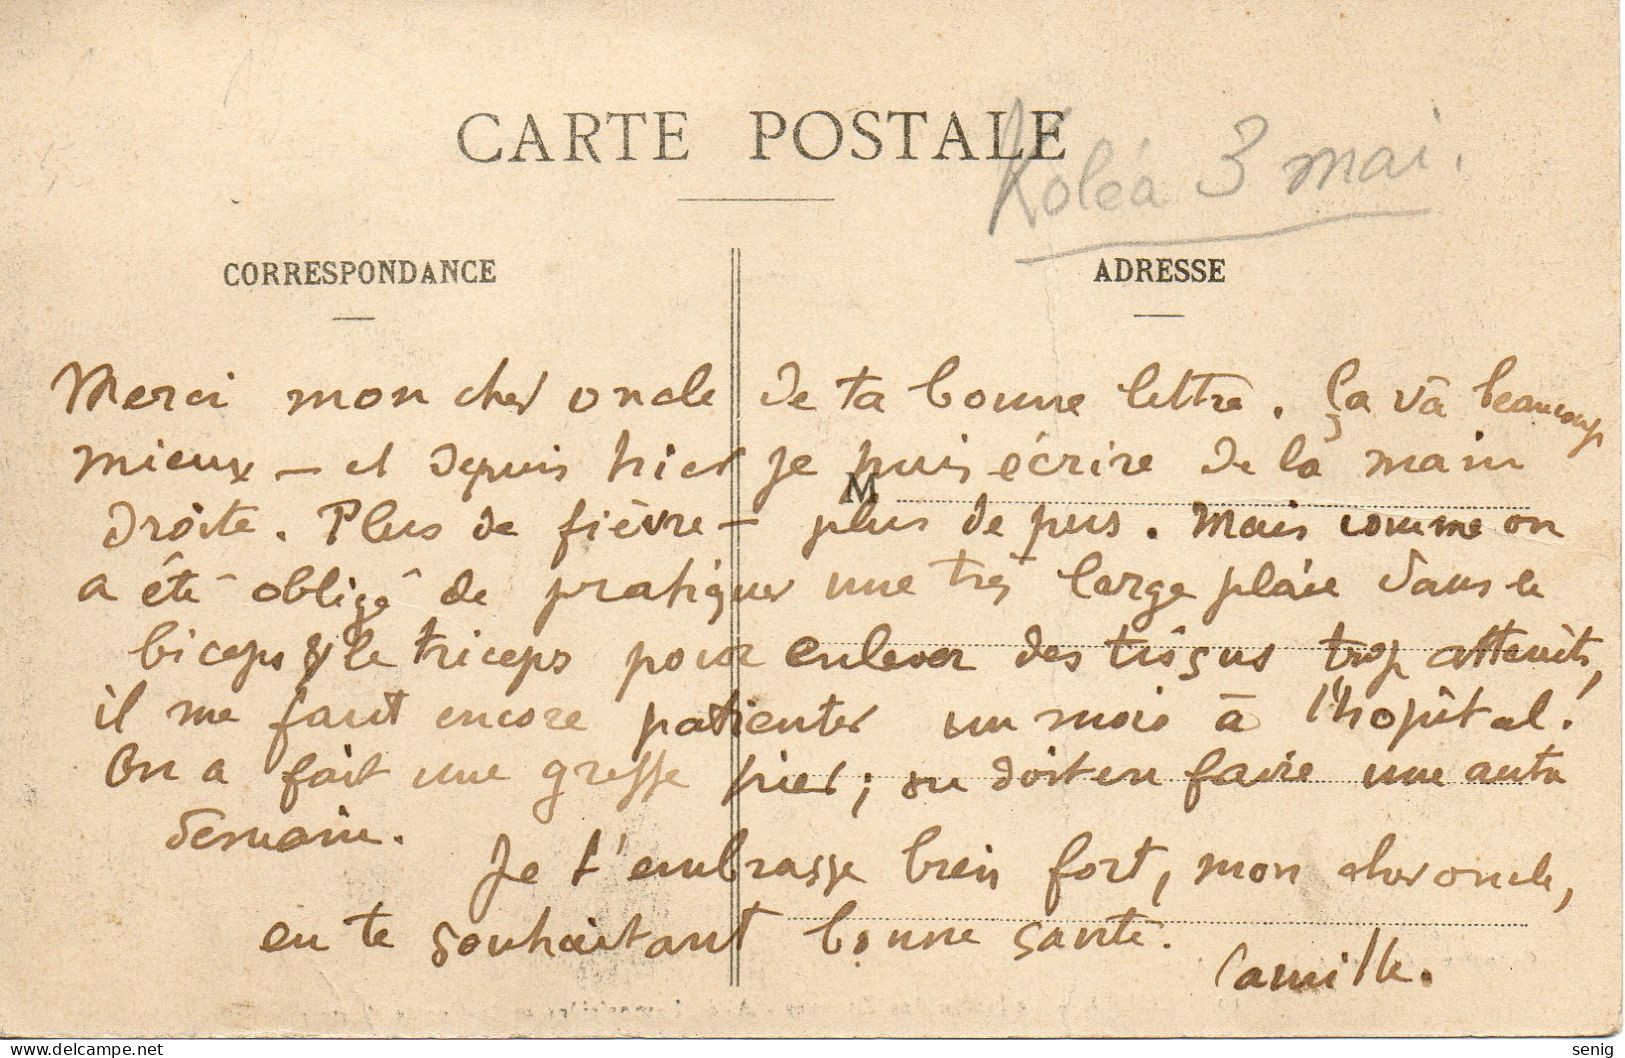 CARTE POSTALE
Koléa 3 mai.
CORRESPONDANCE
ADRESSE
Merci mon cher oncle de ta bonne lettre. Ça va beaucoup
mieux - et depuis hier je puis écrire de la main
M
droite. Plus de fièvre - plus de pus. Mais comme on
a été obligé de pratiquer une très large plaie dans le
biceps & le triceps pour enlever des tissus trop atteints,
il me faut encore patienter un mois à l'hôpital!
On a fait une greffe hier; on doit en faire une autre
demain.
Je t'embrasse bien fort, mon cher oncle,
en te souhaitant bonne santé.
Camille.
senig